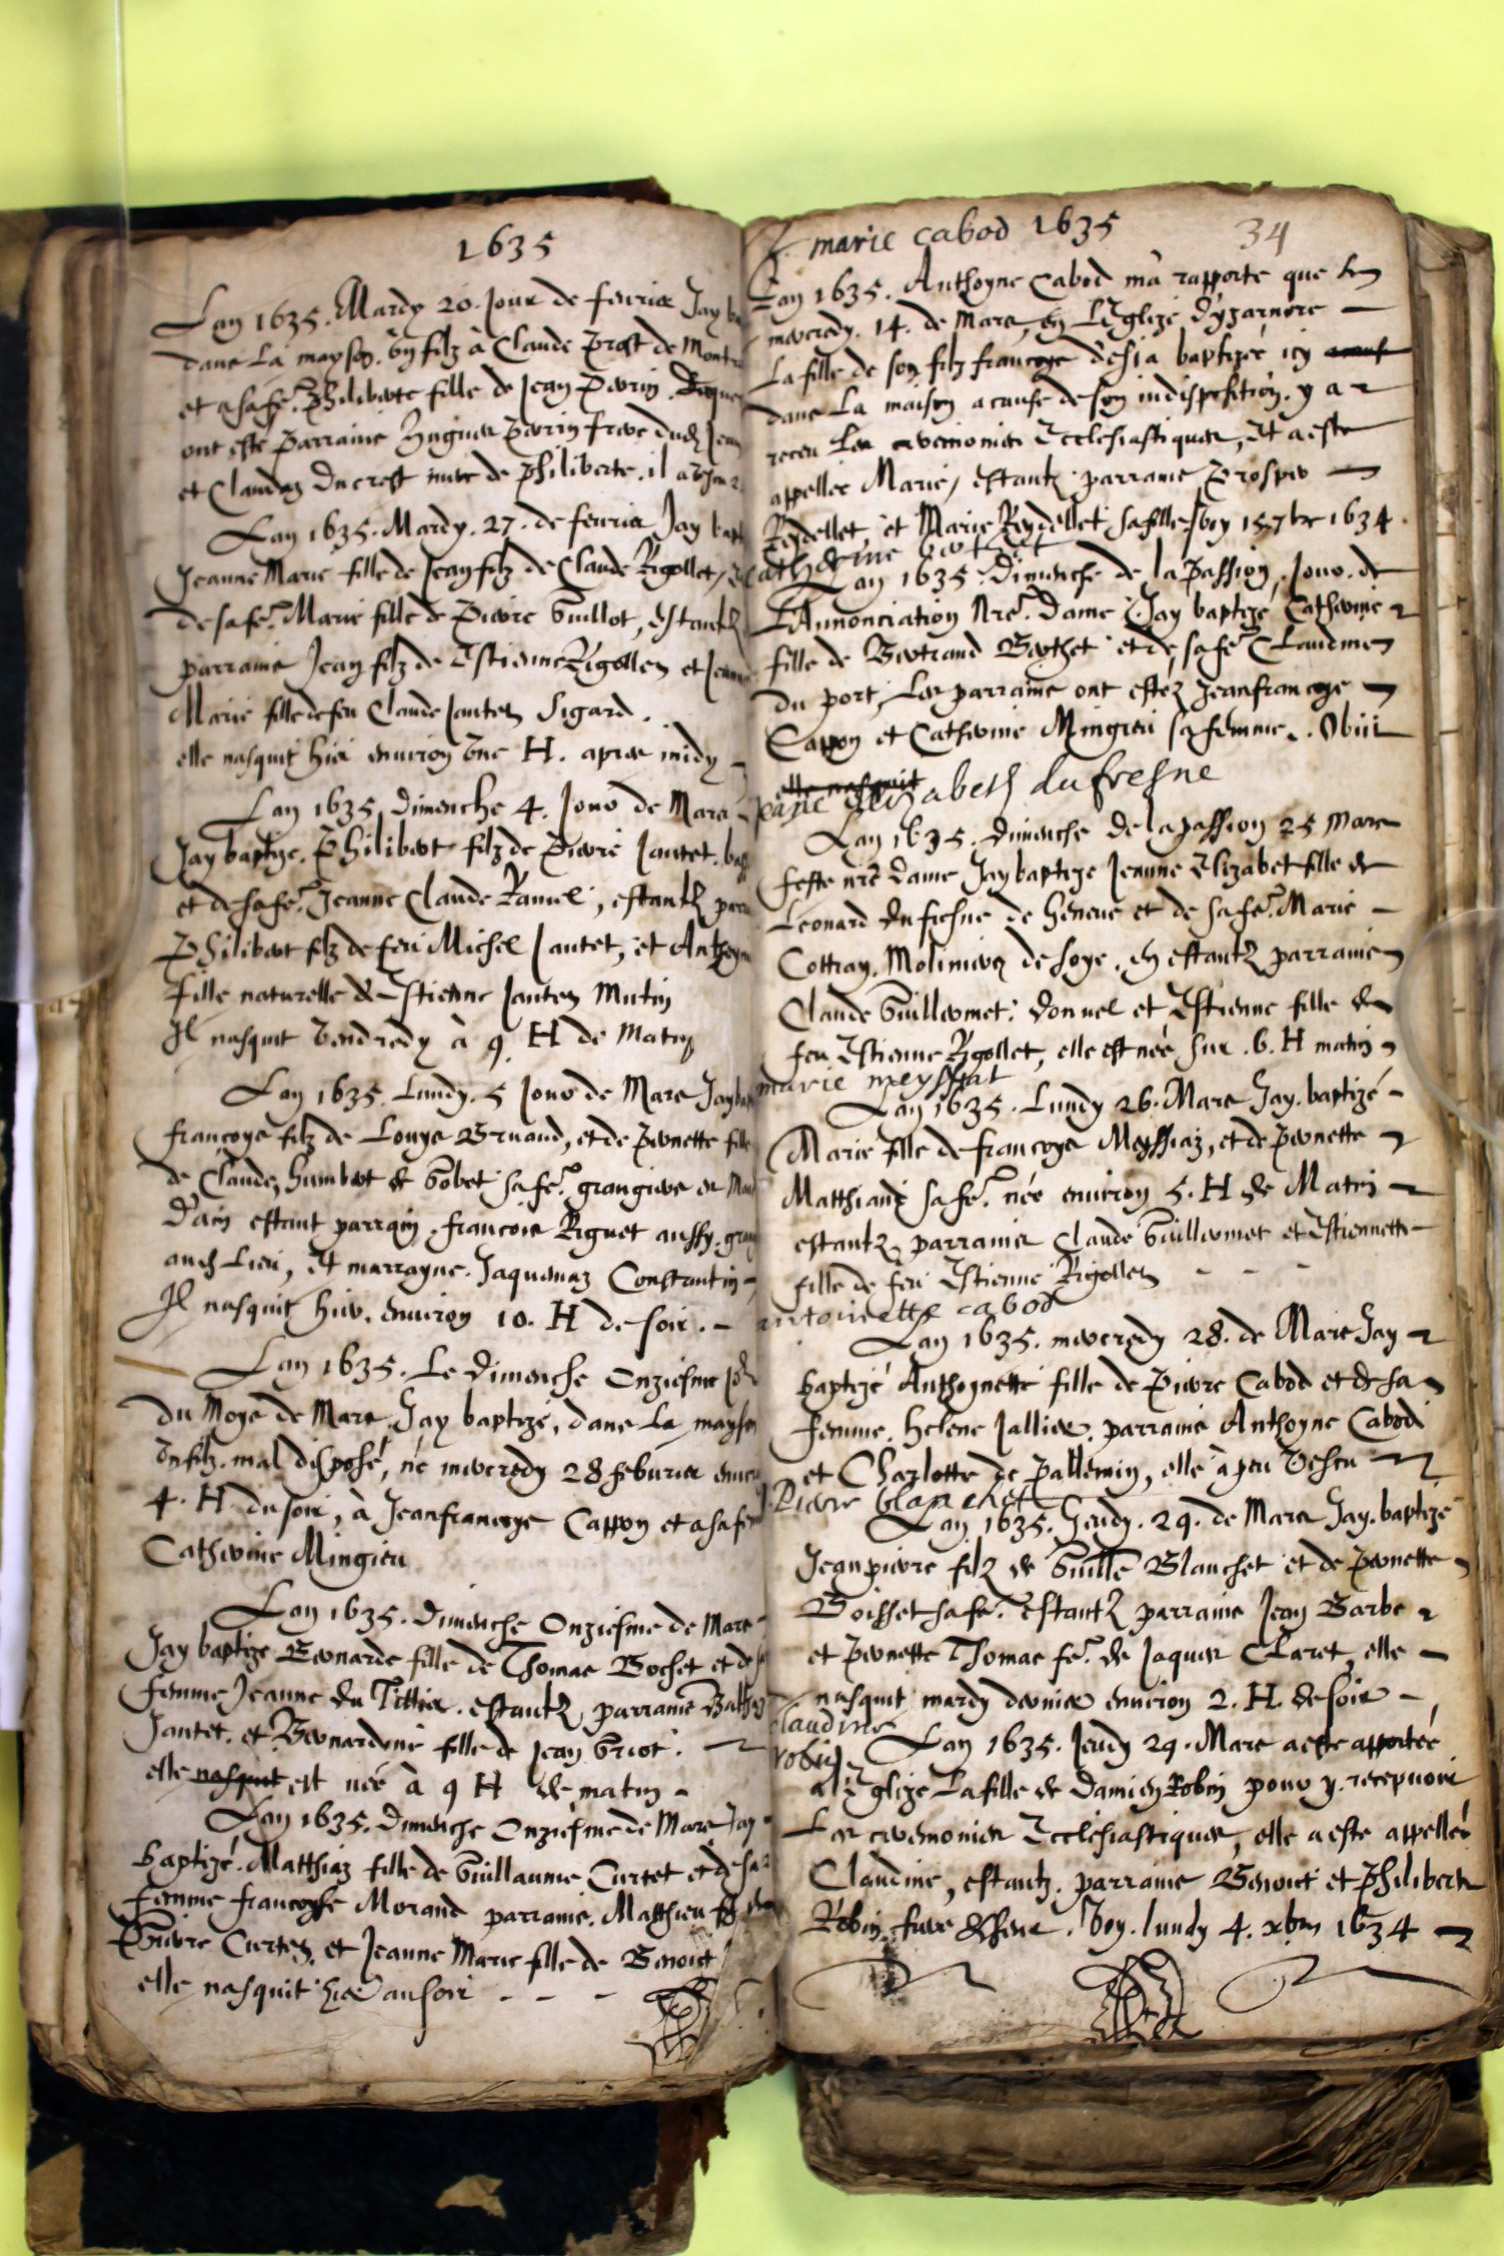 1635
Lan 1635. Mardy 20. Jour de feurier Jay
dans La mayson. vn filz à Claude Prost de
et a sa fe. Philiberte fille de Jean Perrin.
ont esté Parrains Hugues Perrin frere dud
et Claudaz Ducrest mere de Philiberte. il a
Lan 1635. Mardy. 27. de feurier Jay
Jeanne Marie fille de Jean filz de Claude Rigollet,
de sa fe. Marie fille de Pierre Guillot, estantz
parrains Jean filz de Estienne Rigollet et
Marie fille de feu Claude Jantet Sigard.
elle nasquit hier enuiron vne H. apres midy
Lan 1635. Dimenche 4. Jour de Mars
Jay baptizé. Philibert filz de Pierre Jantet.
et de sa fe. Jeanne Claude Ramel, estantz
Philibert filz de feu Michel Jantet, et
fille naturelle de Estienne Jantet Mutin
Il nasquit Vendredy à 9. H de Matin
Lan 1635. Lundy. 5 Jour de Mars Jay
françoys filz de Louys Bruand, et de Pernette fille
de Claude, humbert de Gobet sa fe. grangiers de
d'ain estant parrain. francois Riguet aussy.
aud Lieu, et marrayne. Jaquemaz Constantin
Il nasquit hier. enuiron 10. H de soir.
Lan 1635. Le Dimenche Onziesme
du Moys de Mars Jay baptizé, dans La
vn filz. mal disposé, né mercredy 28 feburier
4. H du soir, à Jeanfrancoys Cappon et a sa
Catherine Mingieu
Lan 1635. Dimenche Onziesme de Mars
Jay baptizé Bernarde fille de Thomas Bochet et de
femme Jeanne du Tittier. estantz parrains
Jantet. et Bernardine fille de Jean Griot.
elle nasquit est née à 9 H de matin
Lan 1635. Dimenche Onziesme de Mars Jay
baptizé. Matthiaz fille de Guillaume Curtet et de sa
femme francoyse Morand parrains. Matthieu
Pierre Curtet, et Jeanne Marie fille de Benoict
elle nasquit hier au soir
marie cabod 1635 34
Lan 1635. Anthoyne Cabod m'a rapporté que
mercredy. 14. de Mars, en L'Eglize d'yzarnore
La fille de son filz francoys desia baptizée icy
dans La maison a cause de son indisposition. y a
receu Les ceremonies Ecclesiastiques, et a esté
appellée Marie, estantz parrains Prosper
Reydellet, et Marie Reydellet sa fille. 15 7bre 1634.
catherine bertet
Lan 1635. Dimenche de la Passion. Jour. de
L'Annonciation Nre. Dame Jay baptizé Catherine
fille de Bertrand Berthet et de sa fe Claudine
du port, Les parrains ont estéz Jeanfrancoys
Cappon et Catherine Mingieu sa femme. Obiit
elle nasquit
jeane elizabeth dufresne
Lan 1635. Dimenche de la passion 25 Mars
feste nre dame Jay baptizé Jeanne Elizabet fille de
Leonard dufresne de et de sa fe. Marie
Cottray. estantz parrains
Claude Guillermet. et Estienne fille de
feu Estienne Rigollet, elle est née sur .6. H matin
marie meyssiat
Lan 1635. Lundy 26. Mars Jay. baptizé
Marie fille de francoys Meyssiaz, et de Pernette
Matthiand sa fe. née enuiron 5. H de Matin
estantz parrains Claude Guillermet et Estiennette
fille de feu Estienne Rigollet
antoinette cabod
Lan 1635. mercredy 28. de Mars Jay
baptizé Anthoynette fille de Pierre Cabod et de sa
femme. helene Jallier. parrains Anthoyne Cabod
et Charlotte de Pallemin, elle à peu Vescu
J. Pierre blanchet
Lan 1635. Jeudy. 29. de Mars Jay. baptizé
Jeanpierre filz de Guille Blanchet et de pernette
Boisset sa fe. estantz parrains Jean Barbe
et pernette Thomas fe. de Jaques Claret, elle
nasquit mardy dernier enuiron 2. H. de soir
claudine
robin
Lan 1635. Jeudy 29. Mars a esté apportée
a l'Eglize La fille de Damien Robin pour y. recepuoir
Les ceremonies Ecclesiastiques, elle a esté appellée
Claudine, estantz. parrains Benoict et Philiberte
Robin frere & seur. lundy 4. xbre 1634